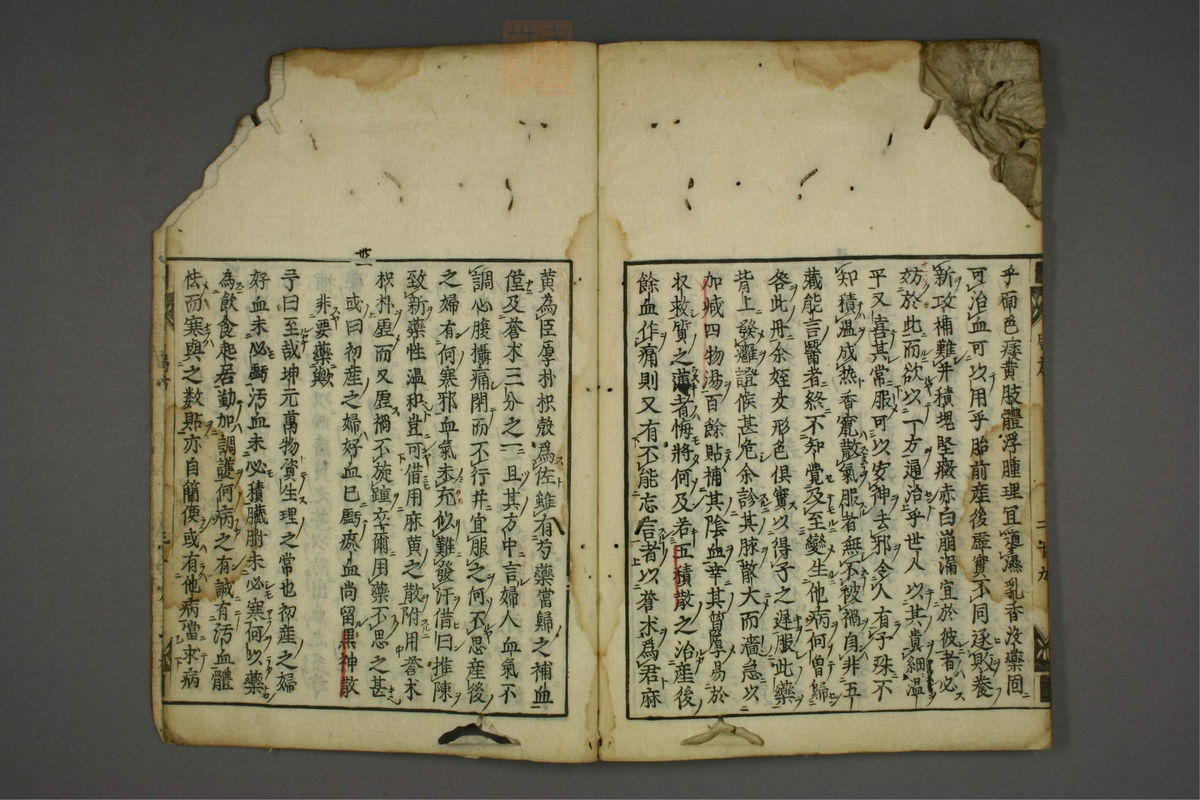 乎而色痿黄肢體浮腫理宜導濕乳香没藥固
可治血可以用乎胎前産後虚實不同逐敗養
新攻補難并積塊堅癥赤白崩漏宜於彼者必
妨於此而欲以一方通治乎世人以其貴細温
平又喜其常服可以安神去邪令人有子殊不
知積温成热香竄散氣服者無不被禍自非五
藏能言醫者終不知覺及至變生他病何曽歸
咎此丹余姪女形色俱實以得子之遲服此藥
背上發癰證候甚危余診其脉散大而濇急以
加減四物湯百餘貼補其陰血幸其質厚易於
収救質之薄者悔將何及若五積散之治産後
餘血作痛則又有不能忘言者以蒼术爲君麻
黄為臣厚朴枳殼爲佐雖有芍藥當歸之補血
僅及蒼术三分之一且其方中言婦人血氣不
調心腹撮痛閉而不行并宜服之何不思産後
之婦有何寒邪血氣未充似難發汗借曰推陳
致新藥性温和豈可借用麻黄之散附用蒼术
枳朴虚而又虚禍不旋踵率爾用藥不思之甚
卅一
或曰初産之婦好血已虧瘀血尚留黒神散
非要藥歟
予曰至哉坤元萬物資生理之常也初産之婦
好血未必虧汚血未必積臓腑未必寒何以藥
為飲食起居勤加調護何病之有誠有汚血體
怯而寒與之数貼亦自簡便或有他病當求病